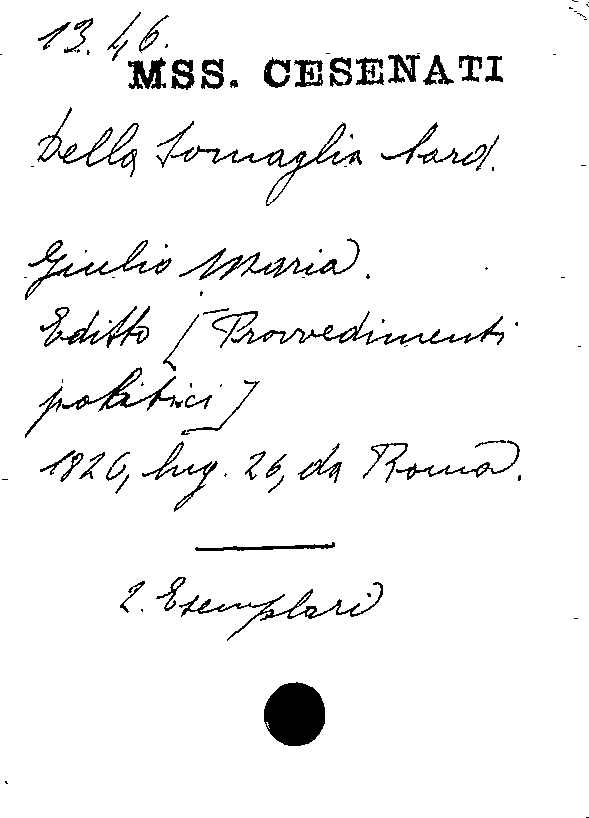 13.46.
MSS. CESENATI
Della Somaglia Card.
Giulio Maria.
Editto [Provvedimenti
politici]
1826, lug. 26, da Roma.
2. Esemplari